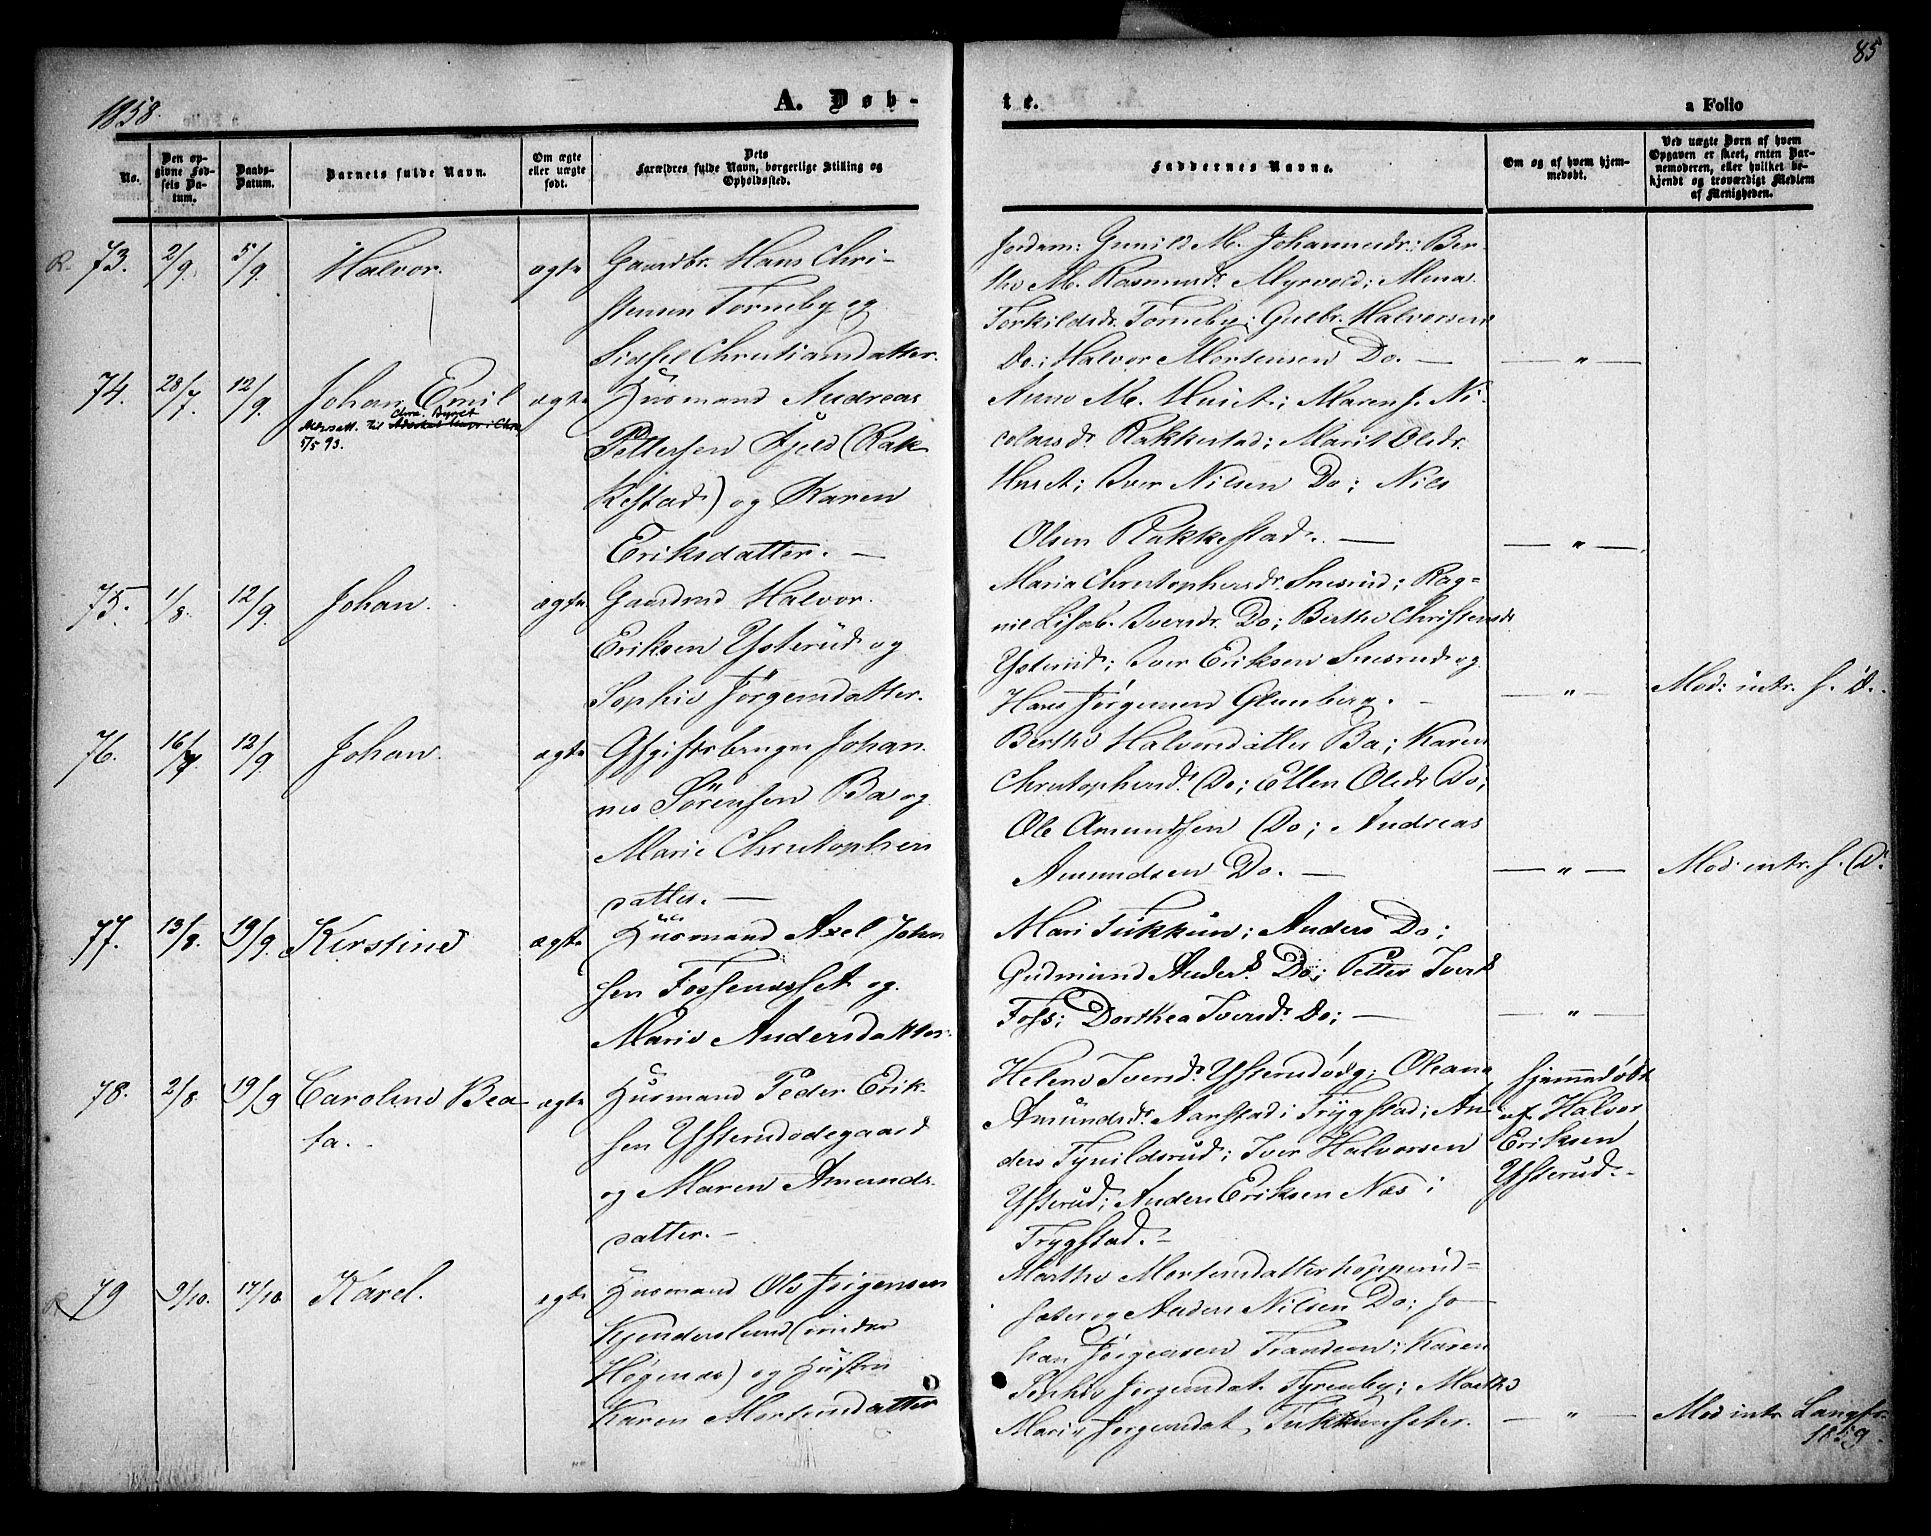 85
1858.
A. Døb-
te.
a Folio
No.
Den op-
givne Fød-
sels Da-
tum.
Daabs-
Datum.
Barnets fulde Navn.
Om ægte
eller uægte
født.
Dets
Forældres fulde Navn, borgerlige Stilling og
Opholdssted.
Faddernes Navne.
Om og af hvem hjem-
medøbt.
Ved uægte Børn af hvem
Opgaven er skeet, enten Bar-
nemoderen, eller hvilket be-
kjendt og troværdigt Medlem
af Menigheden.
R. 73. 2/9. 5/9. Halvor. ægte
Gaardbr. Hans Chri-
stensen Torneby og
Sidsel Christiansdatter.
Jordm: Gunild M. Johannesdr.; Ber-
the M. Rasmusdr Myrvold; Mena
Torkildsdr. Torneby; Gulbr. Halvorsen
Do; Halvor Mortensen Do. —
— " —
74. 28/7. 12/9. Johan Emil ægte
Chra. Byret
5/5 93.
Husmand Andreas
Pettersen Fjeld (Rak-
kestad) og Karen
Eriksdatter. —
Anne M. Huset; Maren J. Ni-
colaisdr Rakkestad; Marit Olsdr.
Huset; Iver Nilsen Do; Nils
Olsen Rakkestad. —
— " —
75. 1/8. 12/9. Johan. ægte
Gaardmd Halvor
Eriksen Ysterud og
Sophie Jørgensdatter.
Maria Christophersdr. Snesrud; Rag-
nil Lisab. Iversdr. Do; Berthe Christensdr
Ysterud; Iver Eriksen Snesrud og
Hans Jørgensen Glenberg.
— " —
Mod: intr. s. D.
76. 16/7. 12/9. Johan. ægte
Afgiftsbruger Johan-
nes Sørensen Ba og
Marie Christophers-
datter. —
Berthe Halvorsdatter Ba; Karen
Christophersdr. Do; Ellen Olsdr Do;
Ole Amundsen Do; Andreas
Amundsen Do. —
— " —
Mod. intr. s. D.
77. 13/8. 19/9. Kerstine ægte
Husmand Axel John-
sen Fossenesset og
Marie Andersdatter.
Mari Tukkun; Anders Do;
Gudmund Anders. Do; Petter Ivers.
Foss; Dorthea Iversdr. Do; —
— " —
78. 2/8. 19/9 Caroline Bea-
ta. ægte
Husmand Peder Erik-
sen Ysterudødegaard
og Maren Amunds-
datter. —
Helene Iversdr. Ysterudødg; Oleana
Amundsdr. Aarstad i Trygstad; An-
ders Tynildsrud; Iver Halvorsen
Ysterud; Anders Eriksen Næs i
Trygstad. —
Hjemmedøbt
af Halvor
Eriksen
Ysterud. —
R 79 9/10. 17/10 Karel. ægte
Husmand Ole Jørgensen
Kjenderslund (under
Høgenes) og Hustru
Karen Mortensdatter
Marthe Mortensdatter Kopperud-
sæter og Anders Nilsen Do; Jo-
han Jørgensen Trandem; Karen
Sophie Jørgensdat. Tyrenby; Marthe
Marie Jørgensdat. Tukkunseter.
— " —
Mod intr Langfr.
1859.